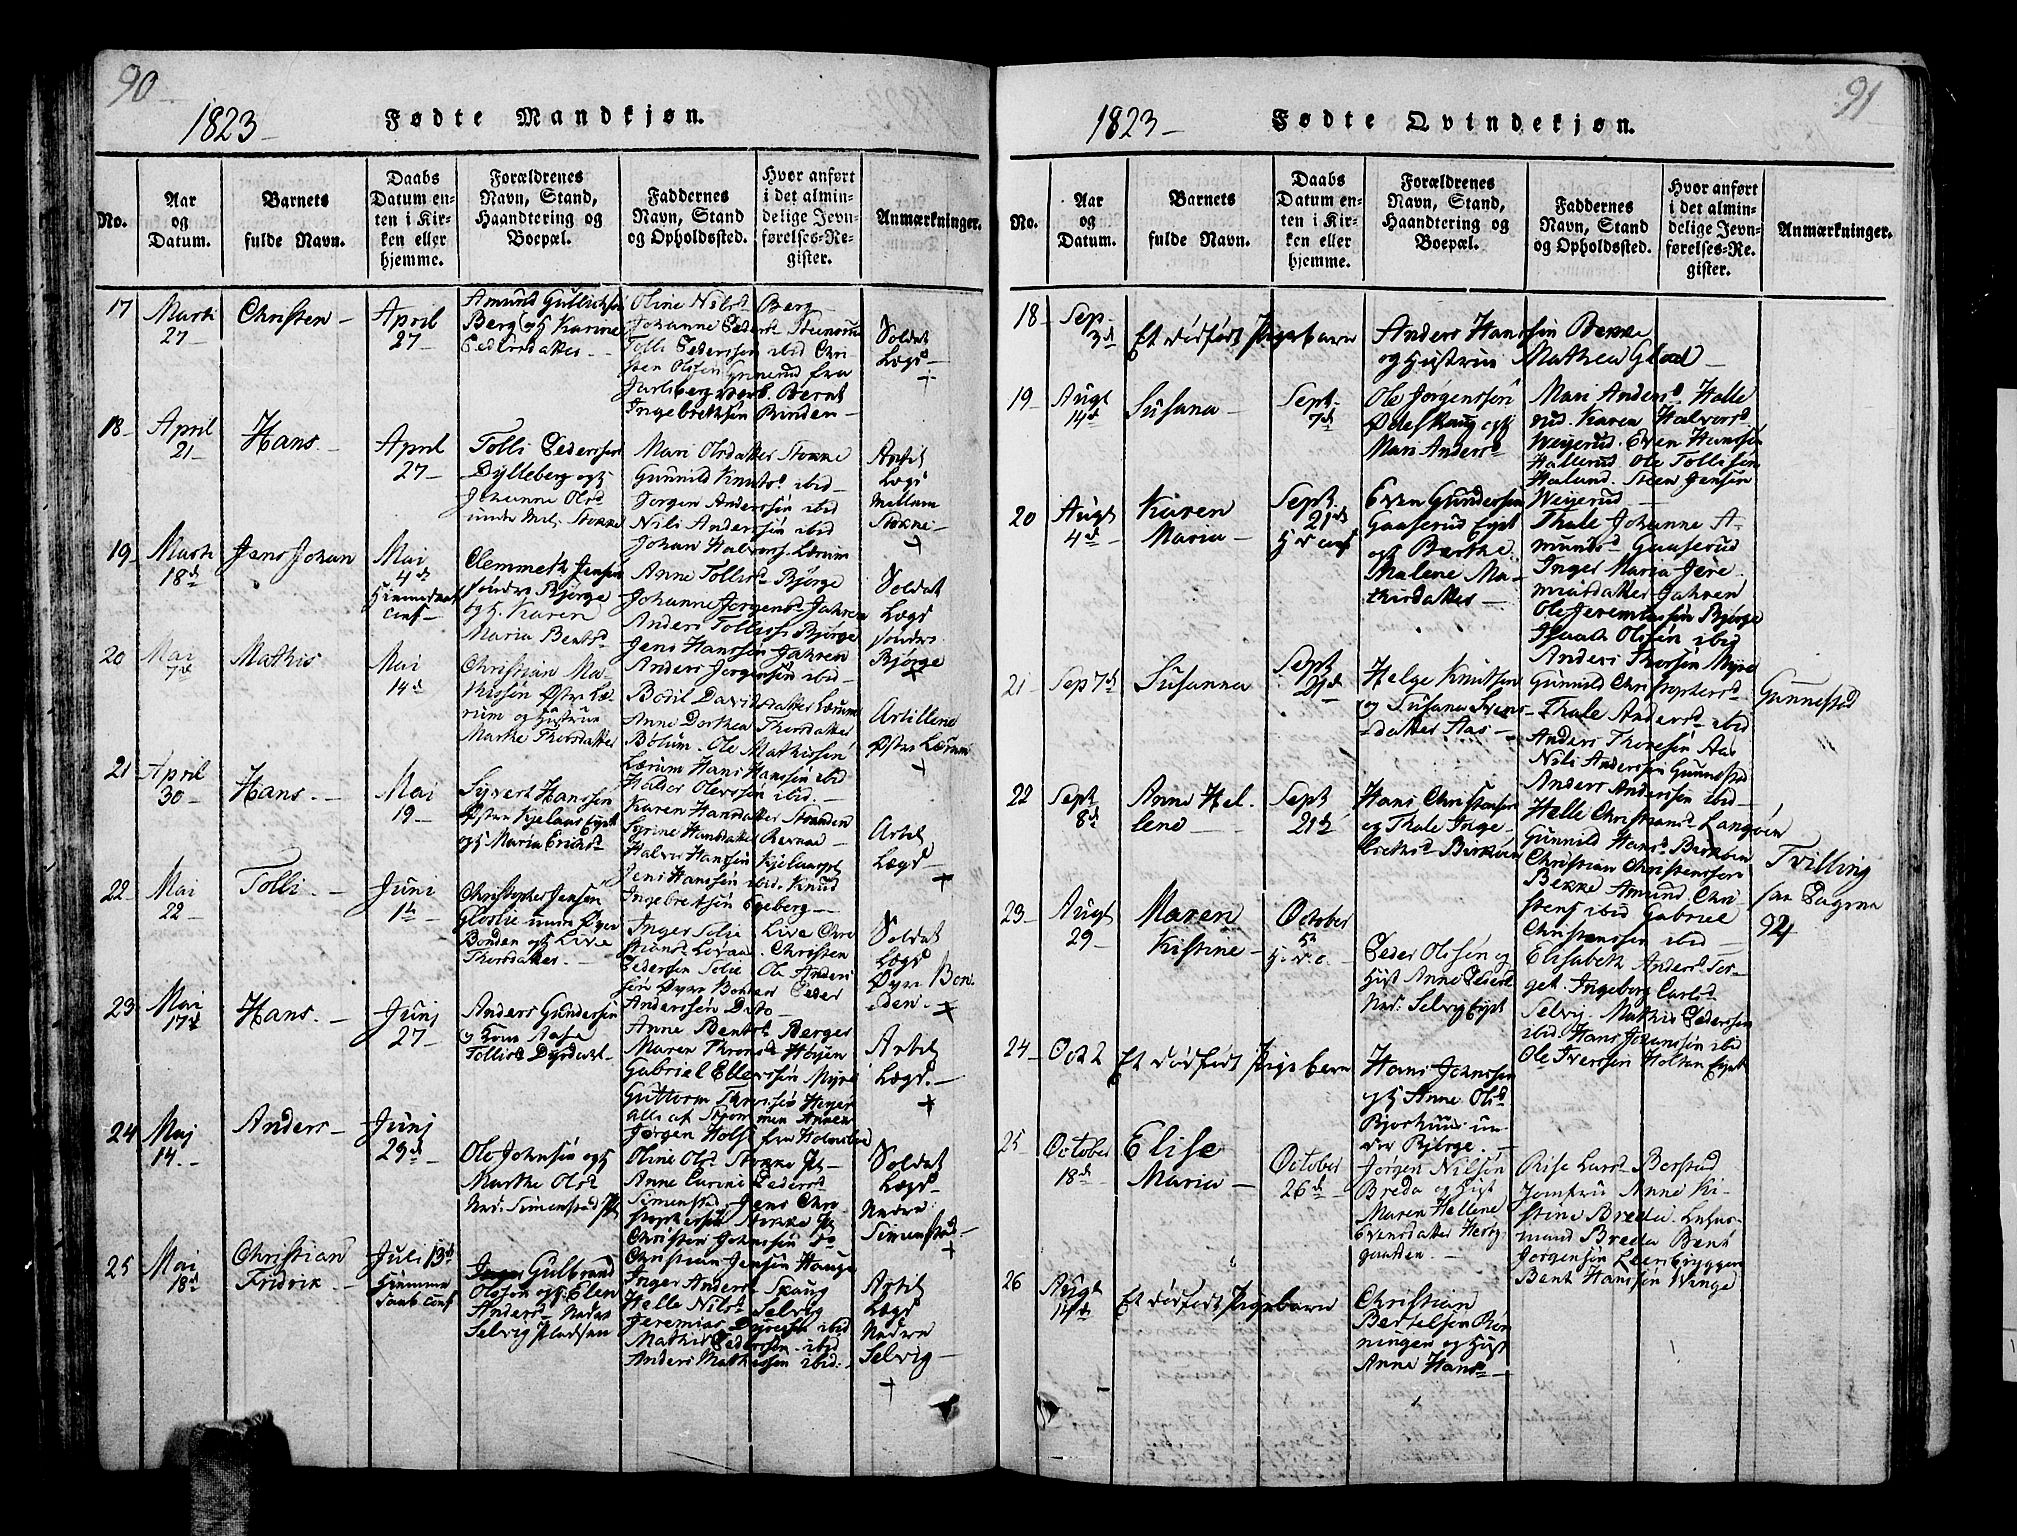 90
1823
Fødte Mandkjøn.
No.
Aar og Datum.
Barnets fulde Navn.
Daabs Datum enten i Kirken eller hjemme.
Forældrenes Navn, Stand, Haandtering og Boepæl.
Faddernes Navn, Stand og Opholdssted.
Hvor anført i det almindelige Jevnførelses-Register.
Anmærkninger.
17
Marti
27
Christen
April
27
Amund Gullichsen
Berg og K Karine
Pedersdatter
Oline Nilsd Berg
Johanne Pedersd
Tolli Pederssøn ibid Chri-
sten Olssøn Grinerud fra
Jarlsberg Verk. Bernt
Ingebretssøn Rinden
Soldat
Lægd
18
April
21
Hans
April
27
Tolli Pederssen
Dylleberg og K
Johanne Olsd
under Stokke
Mari Olsdatter Stokke
Gunnild Knutsd ibid
Jørgen Anderssøn ibid
Nils Anderssøn ibid
Johan Halvorss Lærum
Artil
Lægd
Mellem
Stokke
19
Marti
18d
Jens Johan
Mai
4d
Hjemmedøbt
conf
Clemmeth Jensen
søndre Bjørge
og K. Karen
Maria Bentsd
Anne Tollisd Bjørge
Johanne Jørgensd Jahren
Anders Tolliss Bjørge
Jens Hanssøn Jahren
Anders Jørgensøn ibid
Soldat
Lægd
søndre
Bjørge
20
Mai
7d
Mathis
Mai
14d
Christian Ma-
thissøn Østre Læ-
rum og Hustrue
Marthe Thorsdatter
Bodil Davidsdatter Lærum
Anne Dorthea Thorsdatter
Bølum. Ole Mathissøn
Lærum Hans Hanssøn ibid
Halvor Olevssøn ibid
Artillerie
Østre Lærum
21
April
30
Hans
Mai
19
Syvert Hanssen
Østre Kjelaas Eyet
og K Maria Erichsd
Karen Hansdatter Stranden
Syrine Hansdatter Bernaa
Halvor Hanssøn Kjelaas
Jens Hanssøn ibid. Knud
Ingebretsøn Egeberg
Artil
Lægd
22
Mai
22
Tolli
Juni
1te
Christopher Jensen
under Dyre
Bonden og K Live
Thorsdatter
Inger Solie Live Chri-
Christen
Pedersen Solie Ole Anders
søn Dyre Bonden Peder
Anderssøn Dito
Soldat
Lægd
Dyre Bon
den
23
Mai
17d
Hans
Junj
27
Anders Gundersen
og Kone Aase
Tollisd
Anne Bentsd Berger
Maren Thronsd Høyen
Gabriel Ellevssøn Myre
Guttorm
alle af
Jørgen Holst fra Holmsboe
Artil
Lægd
24
Maj
14
Anders
Junj
29d
Ole Johnsøn og K
Marthe Olsd
Ned. Simenstad
Oline Olsd Stokke
Anne Carine Pedersd
Simenstad Jens Chri-
stophersøn Stokke
Christen Johnssøn do
Christian Jensøn Hauge
Soldat
Lægd
Nedre
Simenstad
25
Mai
18d
Christian
Fridrik
Juli 13d
Hjemme
daab conf
Gulbrand
Olsson og K Elen
Andersd Nedre
Selvig Pladsen
Inger Andersd Skaug
Helle Nilsd Selvig
Jeremias ibid
Mathis Pederssøn ibid
Anders Mathissøn ibid
Artil
Lægd
Nedre
Selvig
91
1823
Fødte Qvindekjøn.
No.
Aar og Datum.
Barnets fulde Navn.
Daabs Datum enten i Kirken eller hjemme.
Forældrenes Navn, Stand, Haandtering og Boepæl.
Faddernes Navn, Stand og Opholdssted.
Hvor anført i det almindelige Jevnførelses-Register.
Anmærkninger.
18
Sep.
3d
Et dødfødt Pigebarn
Anders Hanssøn Bekke
og Hustrue Mathea Glad
19
Augt
14d
Susana
Sept.
7d
Ole Jørgenssøn
Ødelskaug og K
Mari Andersd
Mari Andersd. Halle
rud. Karen Halvorsd
Weyerud. Even Hanssøn
Hallerud. Ole Tollisøn
Haland. Steen Jensøn
Weyerud
20
Augt
4d
Karen
Maria
Sept.
21d
H d conf
Even Gunderssen
Gaaserud Eyet
og Berthe
Malene Ma-
thisdatter
Thale Johanne A-
mundsd Gaaserud
Inger Maria Jere
miasdatter Jahren
Ole Jeremiassøn Bjørge
Isaach Olssøn ibid
21
Sep 7d
Susanna
Sept
21d
Helge Knutsen
og Susana Svens-
datter Aas
Anders Thorssøn Myre
Gunnild Christophersd
Thale Andersd ibid
Anders Thoresøn Aas
Nils Anderssen Gunnestad
Anders Anderssøn ibid
Gunnestad
22
Sept
8d
Anne Hel
lene
Sept
21d
Hans Christensen
og Thale Inge-
bretsd Birkøen
Helle Christiansd Langøen
Gunnild Hansd Birkøen
Christian Christenssen
Bekke Amund Chri
stens ibid Gabriel
Christenssen ibid
Tvilling
paa Pagina
92
23
Augt
29
Maren
Kistine
October
5te
H. d. c.
Peder Olssøn og
Hust Anne Pedersd
Ned: Selvig Eyet
Elisabeth Andersd Tor-
get. Ingeborg Carlsd
Selvig. Mathis Pedersen
ibid. Hans Johnssøn ibid
Ole Iverssen Holten Eyet
24
Oct 2
Et dødfødt Pigebarn
Hans Johnssen
og K Anne Olsd
Bjorkund un
der Bjørge
25
October
18d
Elise
Maria
October
26d
Jørgen Nilsøn
Breda og Hust
Maren Hellene
Evensdatter Herby
gaarden
Rise Larsd Berstad
Jomfru Anne Ki-
stine Breda. Rasmus
Breda Bent
Jørgensøn Leersbryggen
Bent Hanssøn Winge
26
Augt
14d
Et dødfødt Pigebarn
Christian
Bertelsøn Røn
ningen og Hust
Anne Hansd